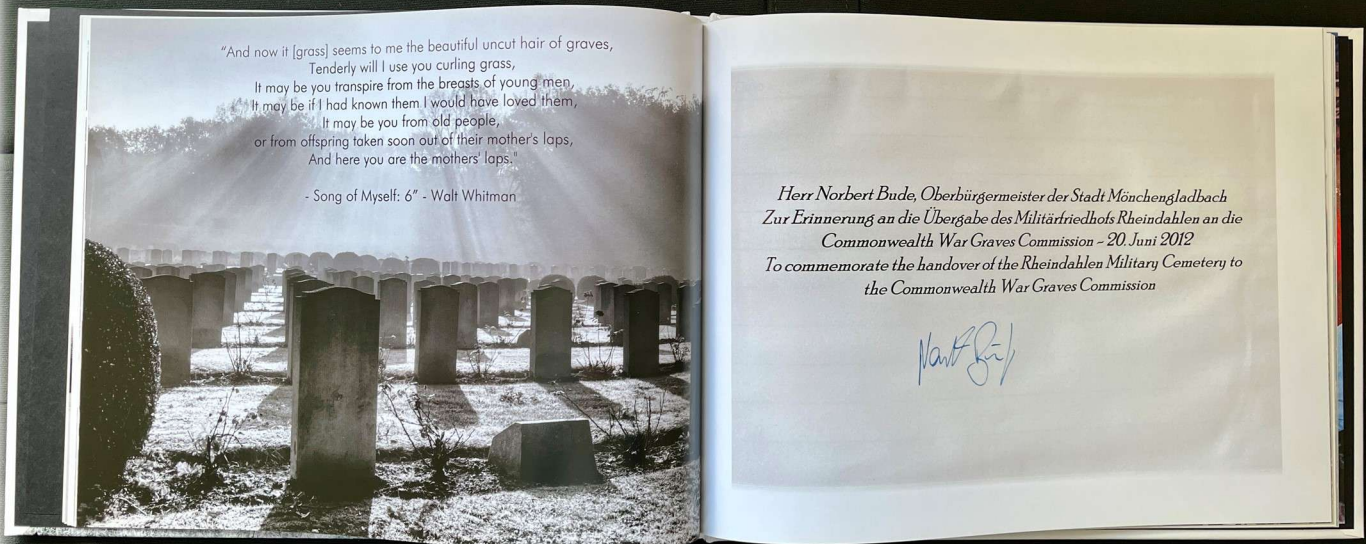 “And now it [grass] seems to me the beautiful uncut hair of graves,
Tenderly will I use you curling grass,
It may be you transpire from the breasts of young men,
It may be if I had known them I would have loved them,
It may be you from old people,
or from offspring taken soon out of their mother's laps,
And here you are the mothers' laps."
- Song of Myself: 6” - Walt Whitman
Herr Norbert Bude, Oberbürgermeister der Stadt Mönchengladbach
Zur Erinnerung an die Übergabe des Militärfriedhofs Rheindahlen an die
Commonwealth War Graves Commission ~ 20. Juni 2012
To commemorate the handover of the Rheindahlen Military Cemetery to
the Commonwealth War Graves Commission